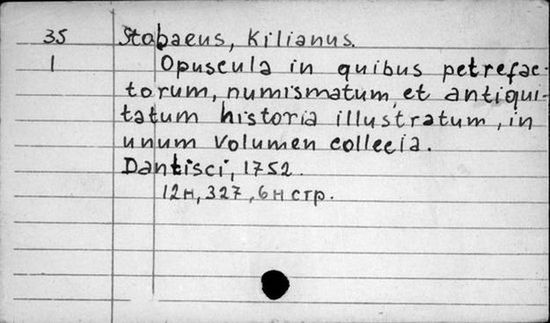 35 Stobaeus, Kilianus.
1 Opuscula in quibus petrefac-
torum, numismatum, et antiqui-
tatum historia illustratum, in
unum volumen collecia.
Dantisci, 1752.
12н, 327, 6н стр.